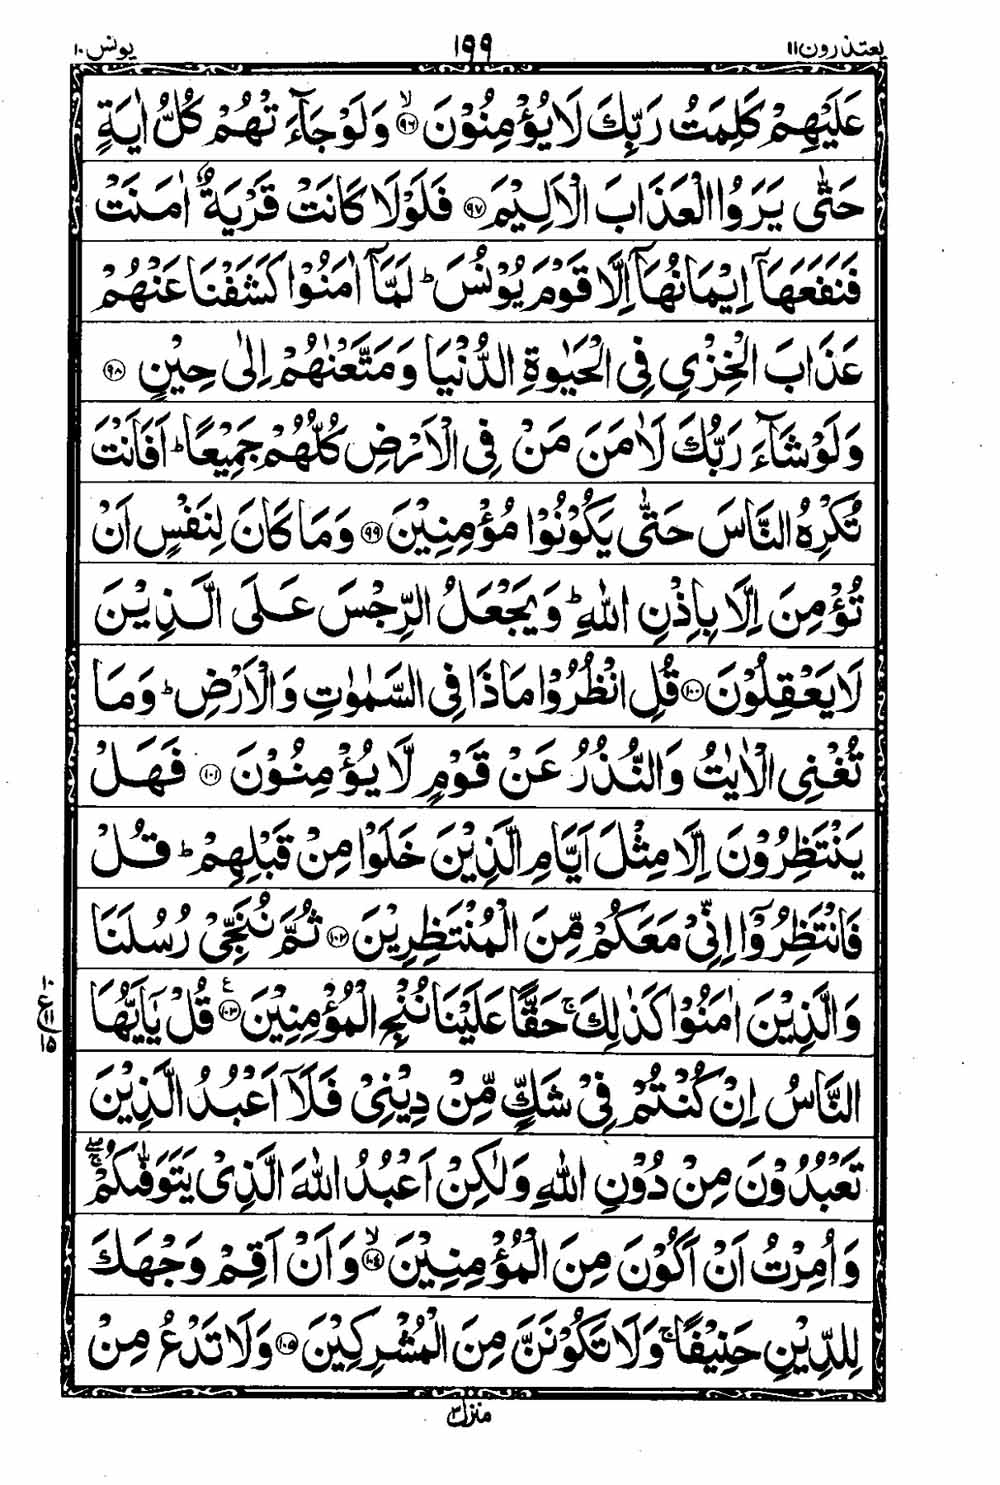 یعتذرون ۱۱ ۱۹۹ یونس ۱۰
عَلَيْهِمْ كَلِمَتُ رَبِّكَ لَا يُؤْمِنُوْنَ ۙ‏﴿۹۶﴾ وَلَوْ جَآءَ تْهُمْ كُلُّ اٰيَةٍ
حَتّٰى يَرَوُا الْعَذَابَ الْاَلِيْمَ ﴿۹۷﴾ فَلَوْلَا كَانَتْ قَرْيَةٌ اٰمَنَتْ
فَنَفَعَهَآ اِيْمَانُهَآ اِلَّا قَوْمَ يُوْنُسَ ؕ لَمَّآ اٰمَنُوْا كَشَفْنَا عَنْهُمْ
عَذَابَ الْخِزْىِ فِى الْحَيٰوةِ الدُّنْيَا وَ مَتَّعْنٰهُمْ اِلٰى حِيْنٍ ﴿۹۸﴾
وَلَوْ شَآءَ رَبُّكَ لَاٰمَنَ مَنْ فِى الْاَرْضِ كُلُّهُمْ جَمِيْعًا ؕ اَفَاَنْتَ
تُكْرِهُ النَّاسَ حَتّٰى يَكُوْنُوْا مُؤْمِنِيْنَ ﴿۹۹﴾ وَمَا كَانَ لِنَفْسٍ اَنْ
تُؤْمِنَ اِلَّا بِاِذْنِ اللّٰهِ ؕ وَيَجْعَلُ الرِّجْسَ عَلَى الَّذِيْنَ
لَا يَعْقِلُوْنَ ﴿۱۰۰﴾ قُلِ انْظُرُوْا مَاذَا فِى السَّمٰوٰتِ وَالْاَرْضِ ؕ وَمَا
تُغْنِى الْاٰيٰتُ وَالنُّذُرُ عَنْ قَوْمٍ لَّا يُؤْمِنُوْنَ ﴿۱۰۱﴾ فَهَلْ
يَنْتَظِرُوْنَ اِلَّا مِثْلَ اَيَّامِ الَّذِيْنَ خَلَوْا مِنْ قَبْلِهِمْ ؕ قُلْ
فَانْتَظِرُوْٓا اِنِّىْ مَعَكُمْ مِّنَ الْمُنْتَظِرِيْنَ ﴿۱۰۲﴾ ثُمَّ نُنَجِّىْ رُسُلَنَا
وَالَّذِيْنَ اٰمَنُوْا كَذٰلِكَ ۚ حَقًّا عَلَيْنَا نُنْجِ الْمُؤْمِنِيْنَ ﴿۱۰۳﴾ ع قُلْ يٰٓاَيُّهَا
النَّاسُ اِنْ كُنْتُمْ فِىْ شَكٍّ مِّنْ دِيْنِىْ فَلَآ اَعْبُدُ الَّذِيْنَ
تَعْبُدُوْنَ مِنْ دُوْنِ اللّٰهِ وَلٰكِنْ اَعْبُدُ اللّٰهَ الَّذِىْ يَتَوَفّٰٮكُمْ ۖۚ
وَاُمِرْتُ اَنْ اَكُوْنَ مِنَ الْمُؤْمِنِيْنَ ۙ‏﴿۱۰۴﴾ وَاَنْ اَقِمْ وَجْهَكَ
لِلدِّيْنِ حَنِيْفًا ۚ وَلَا تَكُوْنَنَّ مِنَ الْمُشْرِكِيْنَ ﴿۱۰۵﴾ وَلَا تَدْعُ مِنْ
۱۰ ع ۱۱ ۱۵
منزل ۳